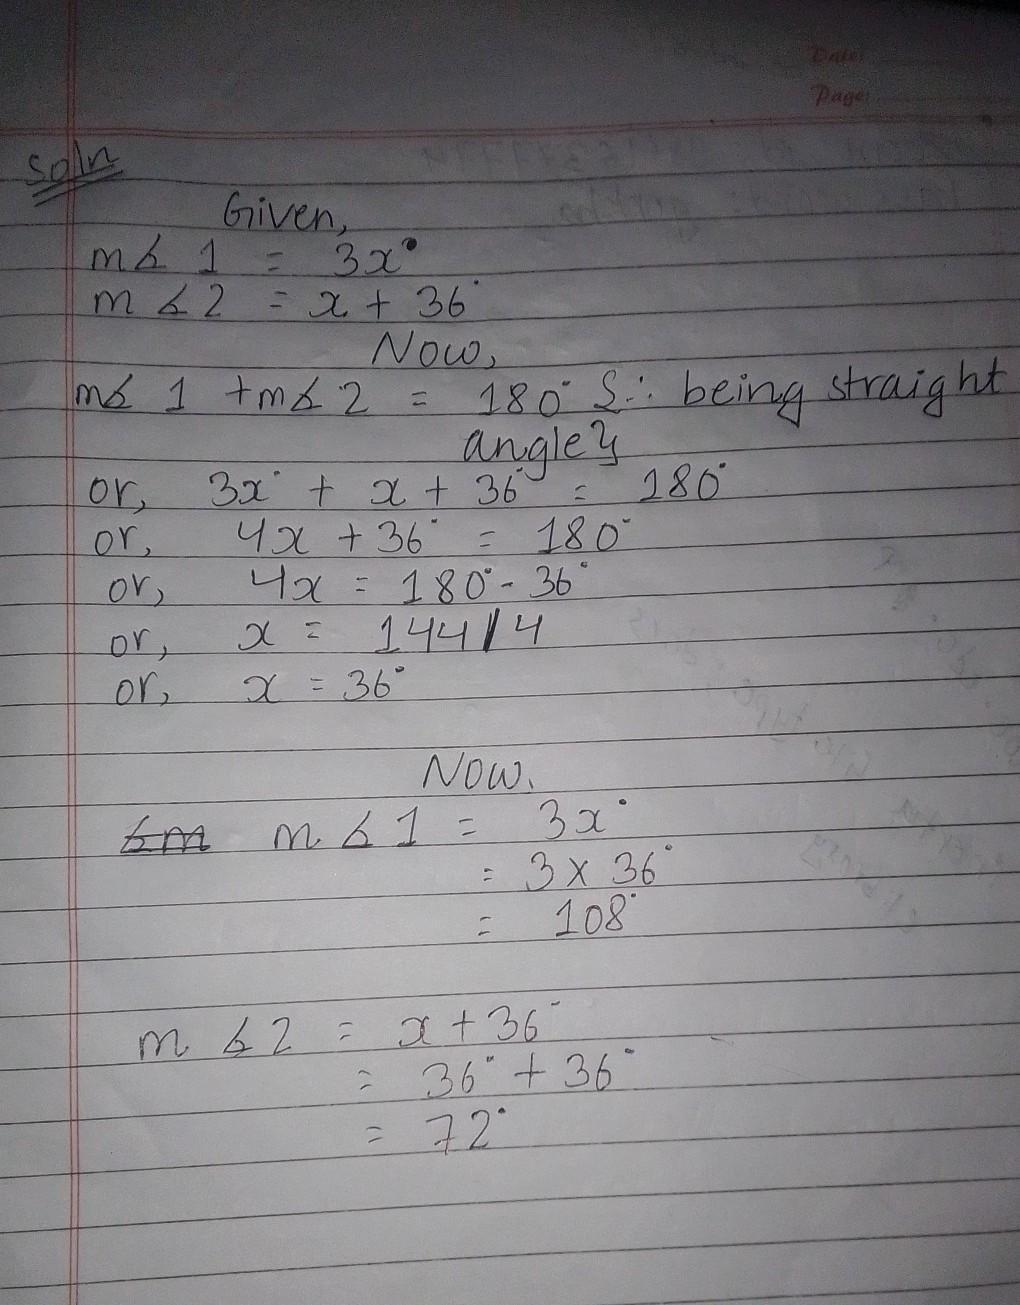 Date:
Page:
Soln
Given,
m∡ 1 = 3x°
m∡2 = x + 36°
Now,
m∡ 1 + m∡ 2 = 180° {∵ being straight
angle}
or, 3x° + x + 36° = 180°
or, 4x + 36° = 180°
or, 4x = 180° - 36°
or, x = 144/4
or, x = 36°
Now.
m ∡1 = 3x°
= 3 × 36°
= 108°
m ∡2 = x + 36°
= 36° + 36°
= 72°